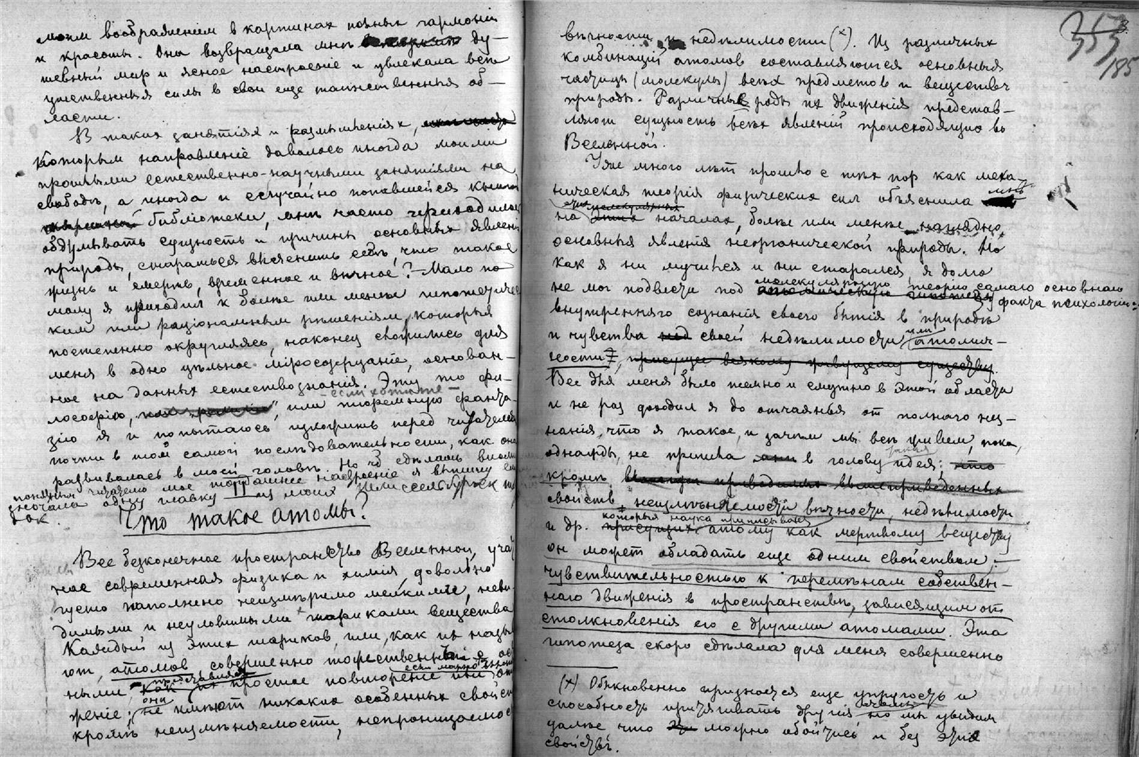 моим воображением в картинах полных гармонии
и красоты. Она возвращала мнѣ ду-
шевный мир и ясное настроеніе и увлекала всѣ
умственныя силы в свои еще таинственныя об-
ласти.
В таких занятіях и размышленіях,
которым направленіе давалось иногда моими
прошлыми естественно-научными занятіями на
свободѣ, а иногда и случайно попавшейся книгой
библіотеки, мнѣ часто приходилось
обдумывать сущность и причины основных явленій
природы, стараться выяснить себѣ, что такое
жизнь и смерть, временное и вѣчное? Мало по
малу я приходил к болѣе или менѣе гипотетичес-
ким или раціональным рѣшеніям, которыя
постепенно округляясь, наконец сложились для
меня в одно цѣльное міросозерцаніе, основан-
ное на данных естествознанія. Эту то фи-
лософію, или – если хотите – тюремную фанта-
зію я и попытаюсь изложить перед читателем
почти в том самом послѣдовательности, как она
развивалась в моей головѣ. Но чтоб сдѣлать вполнѣ
понятным читателю мое тогдашнее настроеніе я выпишу
сначала одну главку из моих Шлиссельбургских
Что такое атомы?
Все безконечное пространство Вселенной, учат
нас современная физика и химія, довольно
густо наполнено неизмѣримо мелкими, неви-
димыми и неуловимыми шариками вещества
Каждый из этих шариков или, как их назы-
ют, атомов, совершенно тожественный с
ными простое повтореніе или
женіе, они не имѣют никаких особенных свойств
кромѣ неизмѣняемости, непроницаемости
353
185
вѣчности и недѣлимости (x). Из различных
комбинацій атомов составляются основныя
частицы (молекулы) всѣх предметов и веществ
природы. Различные роды их движенія представ-
ляют сущность всѣх явленій происходящих во
Вселенной.
Уже много лѣт прошло с тѣх пор как меха-
ническая теорія физических сил объяснила мнѣ
на началах, болѣе или менѣе наглядно,
основныя явленія неорганической природы. Но
как я ни мучился и ни старался, я долго
не мог подвести под молекулярную теорію самаго основнаго факта психологіи:
внутренняго сознанія своего бытія в природѣ
и чувства своей недѣлимости или атомич-
ности,
Все для меня было темно и смутно в этой области
и не раз доходил я до отчаянья от полнаго нез-
нанія, что я такое, и зачѣм мы всѣ живем, пока,
однажды, не пришла в голову такая идея:
кромѣ
свойств неизмѣняемости вѣчности, недѣлимости
и др. которыя наука приписывает атому как мертвому веществу
он может обладать еще одним свойством:
чувствительностью к перемѣнам собствен-
наго движенія в пространствѣ, зависящим от
столкновенія его с другими атомами. Эта
гипотеза скоро сдѣлала для меня совершенно
(x) Обыкновенно признается еще упругость и
способность притягивать другія но мы увидим
далѣе что можно обойтись и без этих
свойств.